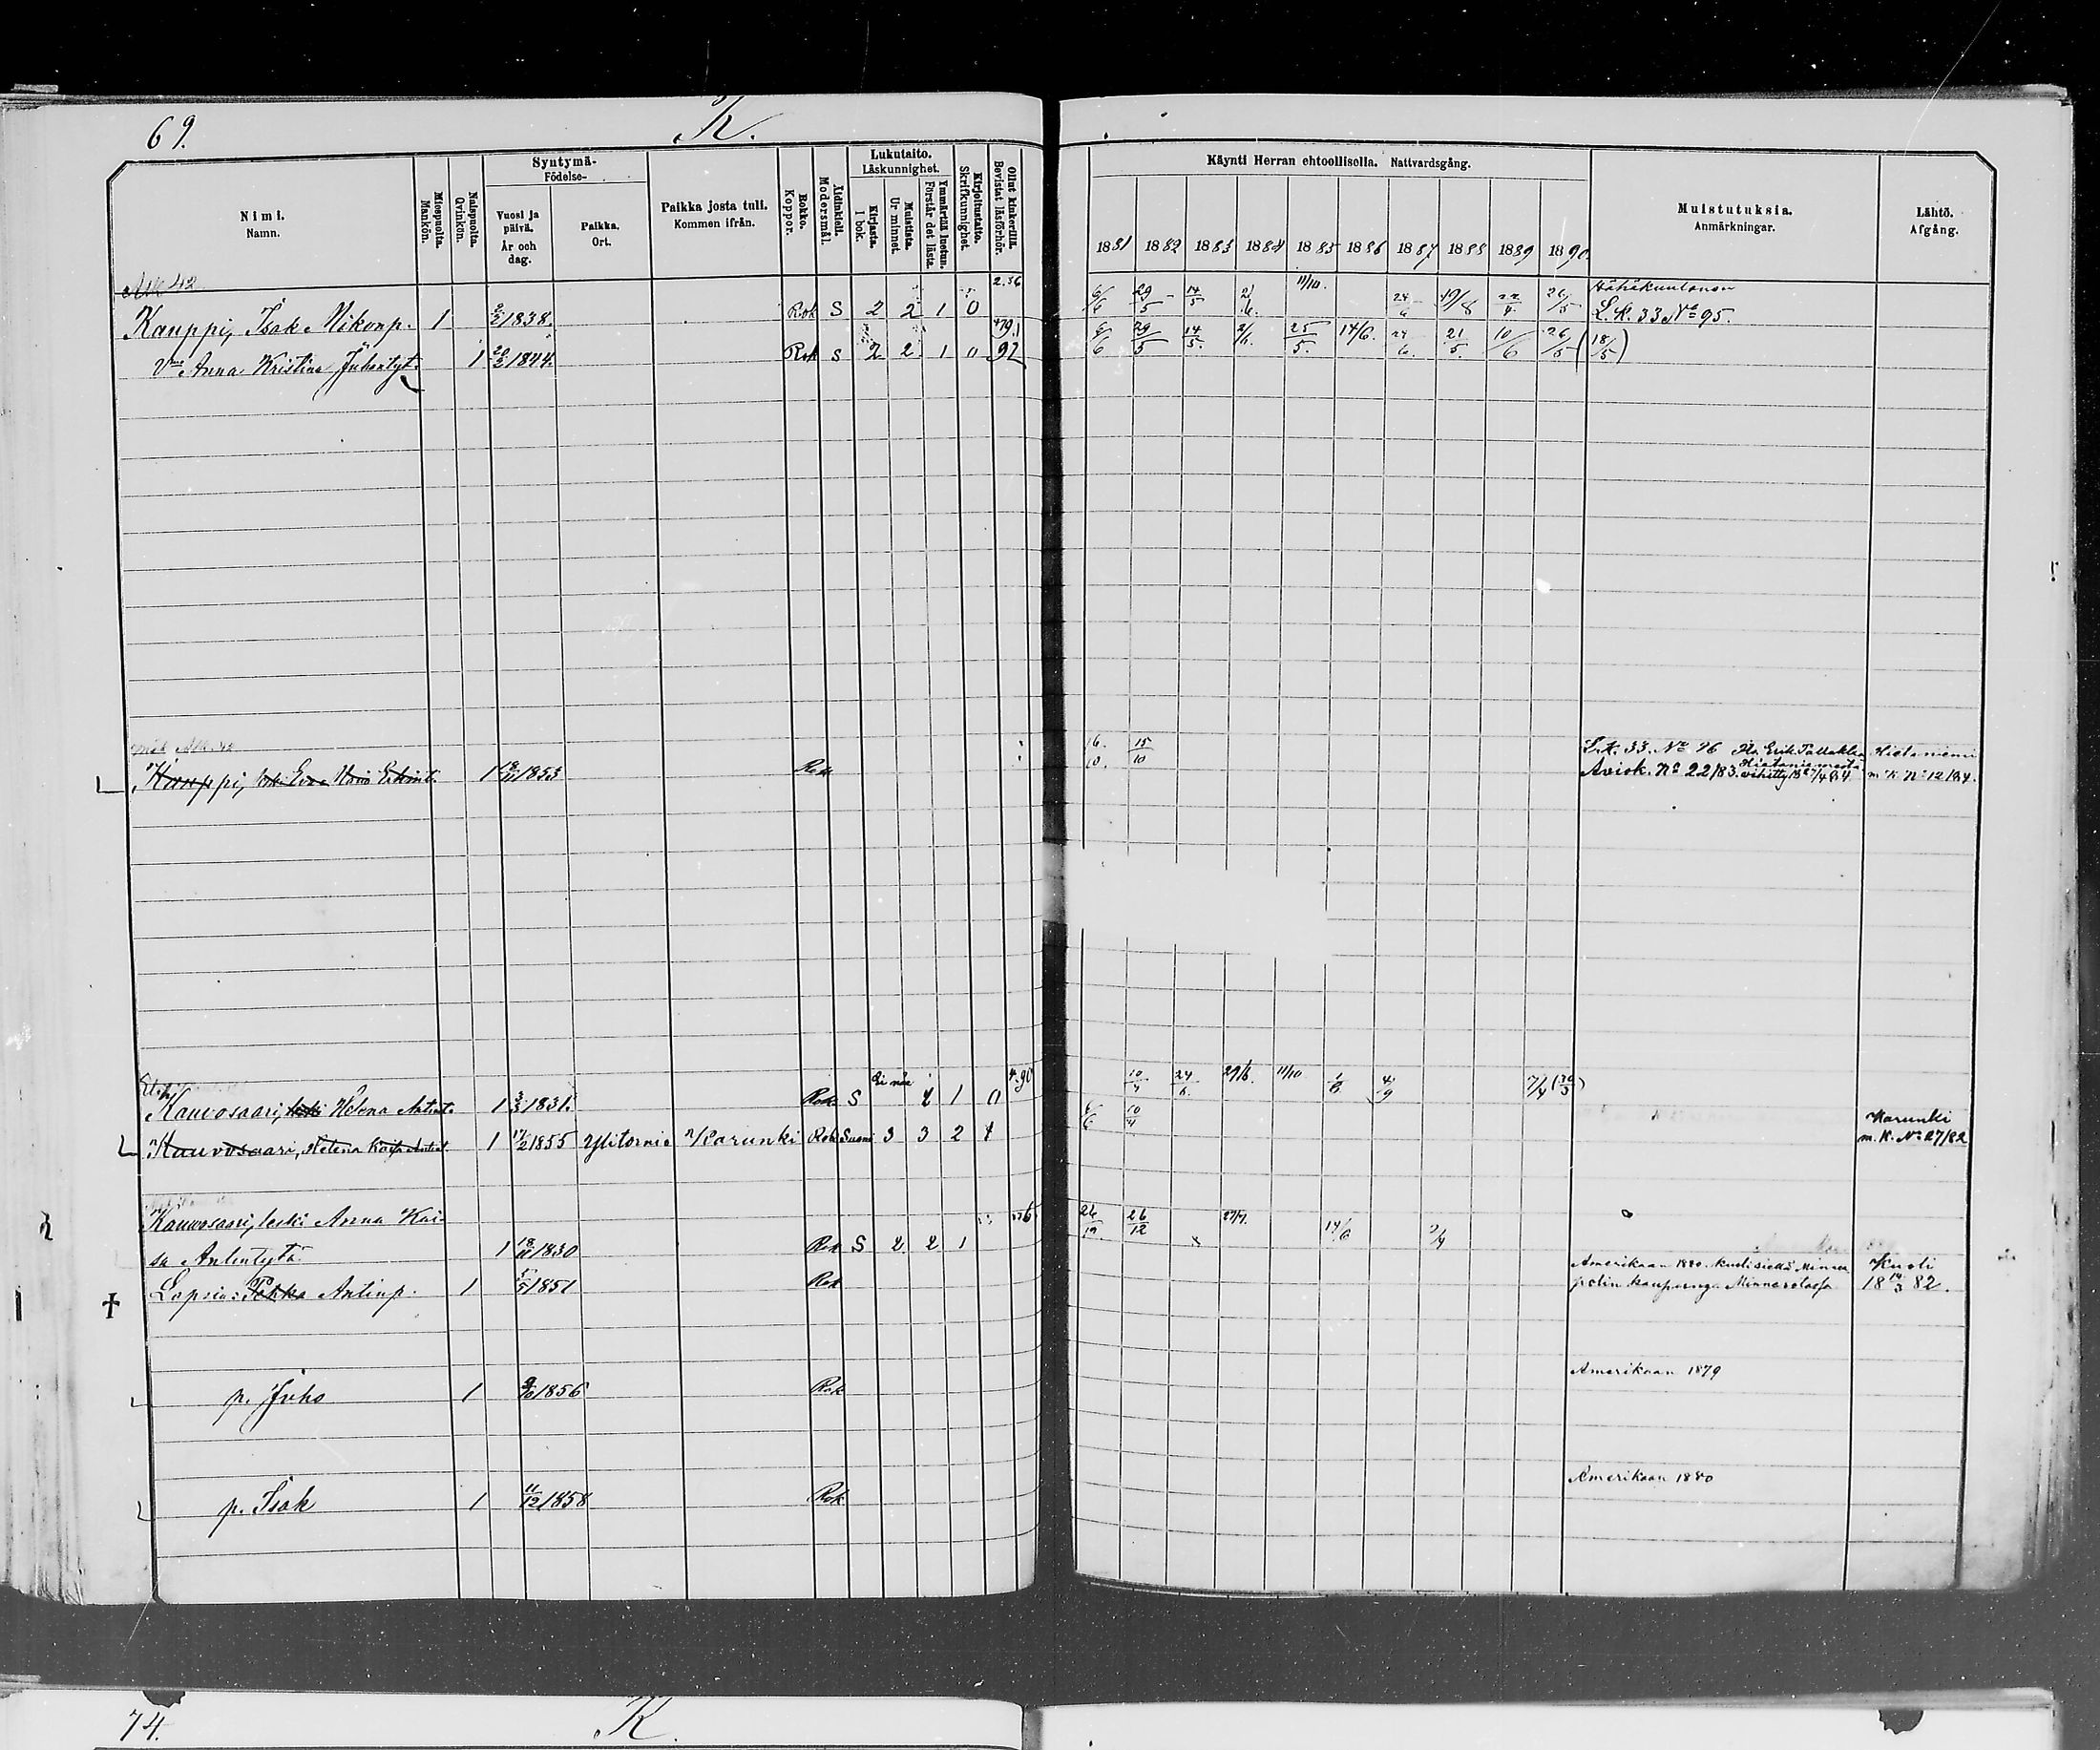 69. K.
Nimi. Namn.
Miespuolta. Mankön.
Naispuolta. Qvinkön.
Syntymä- Födelse-
Vuosi ja päivä. År och dag.
Paikka. Ort.
Paikka josta tuli. Kommen ifrån.
Rokko. Koppor.
Äidinkieli. Modersmål.
Lukutaito. Läskunnighet.
Kirjasta. I bok.
Muistista. Ur minnet.
Ymmärtää luetun. Förstår det lästa.
Kirjoitustaito. Skrifkunnighet.
Ollut kinkerillä. Bevistat läsförhör.
Käynti Herran ehtoollisella. Nattvardsgång.
1881 1882 1883 1884 1885 1886 1887 1888 1889 1890
Muistutuksia. Anmärkningar.
Lähtö. Afgång.
Kauppi, Isak Nikonp. 1 2/2 1838. Rok S 2 2 1 0 6/6 29/5 14/5 2/6 11/10. 24/6 19/8 22/4 26/5 L.K. 33 No 95.
Vmo Anna Kristina Juhontyt. 1 20/3 1844. Rok S 2 2 1 0 92 6/6 29/5 14/5. 2/6. 25/5. 14/6. 24/6. 21/5. 10/6 26/5 (18/5)
L.K. 33. No 96
Kauppi, 1 1853 Rok 16/10. 15/10 Aviok. No 22/83. m. K. No 12/84.
Ei näe 4.90
Kauvosaari, leski Helena Antint. 1 3/3 1831. Rok S 2 1 0 10/4 24/6. 29/6. 11/10 1/8 4/9 7/4 (30/3)
Kauvosaari, Helena Kaisa Antint. 1 17/2 1855 Ylitornio Karunki Rok Suomi 3 3 2 4 6/6 10/4 Karunki
m. K. No 27/82
Kauvosaari, leski Anna Kai-
sa Antintytä 1 18/11 1830 Rok S 2 2 1 26/12 26/12 27/7. 14/6 2/4
Lapsia: Pekka Antinp. 1 1/5 1851 Rok Amerikaan 1880. Kuoli siellä Minnea
polin kaupungi. Minnesotassa Kuoli
18 14/3 82.
p. Juho 1 9/10 1856 Rok Amerikaan 1879
p. Isak 1 11/12 1858 Rok Amerikaan 1880
74. K.